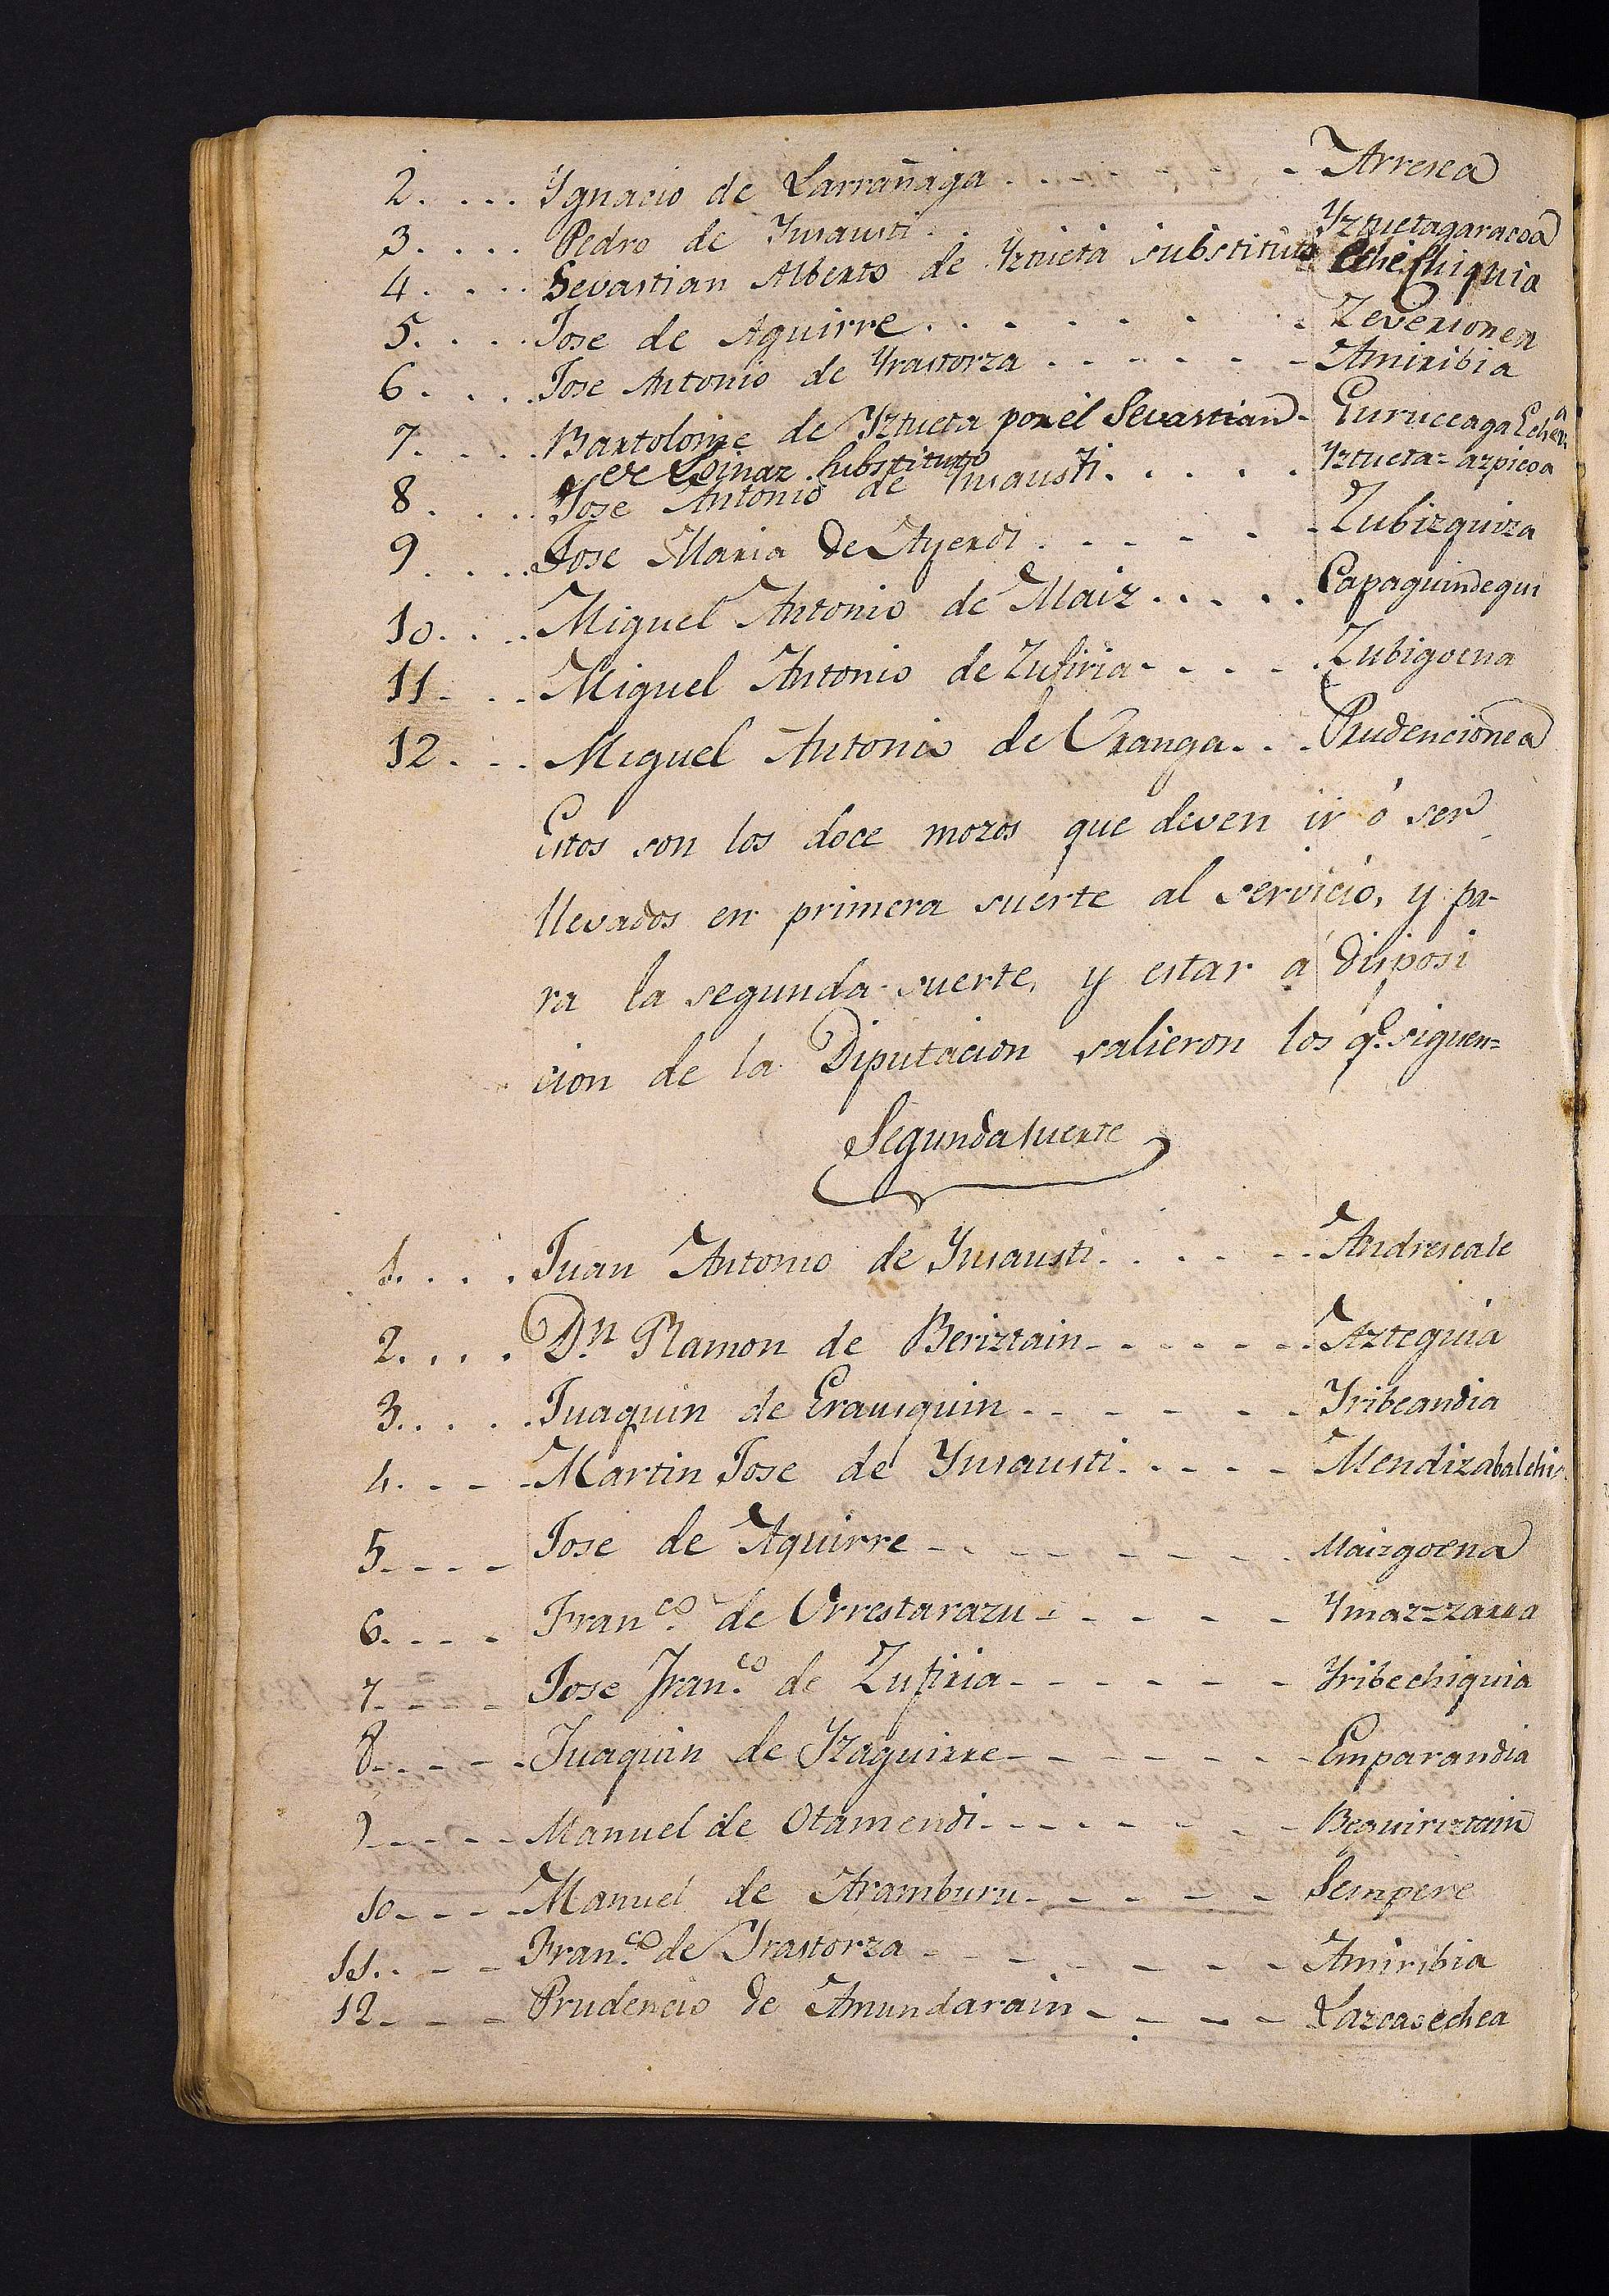 2. . . . Ygnacio de Larrañaga . - - - - - Arresea
3. . . . Pedro de Ynsausti . . Yztuetagaracoa
4. . . . Sevastian Alberto de Yztueta substituto Echechiquia
5. . . . Jose de Aguirre . . . - - - - . Zeverionea
6. . . . Jose Antonio de Yrastorza . - - - - - Amiribia
7. . . . Bartolome de Yztueta por él Sevastian - Guruceaga Echea
de Loinaz Substituto
8. . . . Jose Antonio de Ynsausti. . . . . Yztueta=azpicoa
9. . . . Jose Maria de Ayerdi . - - - - - Zubizquiza
10. . . . Miguel Antonio de Maiz . . . . . Capaguindegui
11 - . . - Miguel Antonio de Zufiria - - - - . Zubigoena
12. . . Miguel Antonio de Uranga. . . Prudencionea
Estos son los doce mozos que deven ir ó ser
llevados en primera suerte al servicio, y pa-
ra la segunda suerte, y estar á disposi
cion de la Diputacion salieron los q.e siguen=
Segunda suerte
1. . . . Juan Antonio de Ynsausti. . . - - - . Andreseale
2. . . . D.n Ramon de Beriztain - - - - - - - . Azteguia
3. . . . . Juaquin de Erausquin - - - - - - Yribeandia
4. - - - Martin Jose de Ynsausti. - - - - Mendizabalchi
5. - - - Jose de Aguirre - - - - - - - - . Maizgoena
6. - - - Fran.co de Urrestarazu - - - - - Ymaz=zarra
7. - - - Jose Fran.co de Zufiria - - - - - - Yribechiquia
8 - - - - Juaquin de Yzaguirre - - - - - - - Emparandia
9 - - - - Manuel de Otamendi - - - - - - - Beguiriztain
10 - - - - Manuel de Aramburu - - - - - - Sempere
11. - - - Fran.co de Yrastorza - - - - - - - Amiribia
12 - - - Prudencio de Amundarain - - - - - Lazcasechea